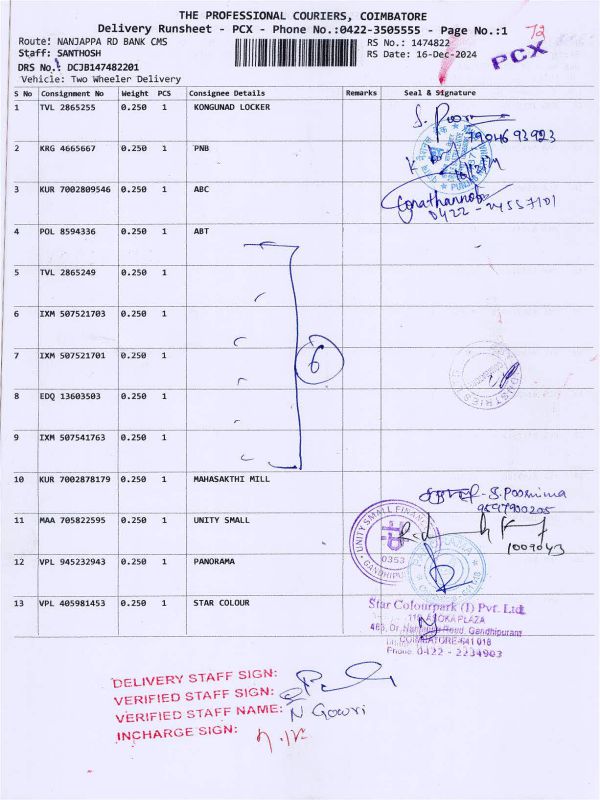 THE PROFESSIONAL COURIERS, COIMBATORE
Delivery Runsheet - PCX - Phone No.:0422-3505555 - Page No.:1
72
PCX
Route: NANJAPPA RD BANK CMS
RS No.: 1474822
Staff: SANTHOSH
RS Date: 16-Dec-2024
DRS No.: DCJB147482201
Vehicle: Two Wheeler Delivery
S No Consignment No Weight PCS Consignee Details Remarks Seal & Signature
1 TVL 2865255 0.250 1 KONGUNAD LOCKER
S. Poor
7904693923
2 KRG 4665667 0.250 1 PNB
3 KUR 7002809546 0.250 1 ABC
0422 - 24557101
4 POL 8594336 0.250 1 ABT
5 TVL 2865249 0.250 1
6 IXM 507521703 0.250 1
6
7 IXM 507521701 0.250 1
8 EDQ 13603503 0.250 1
9 IXM 507541763 0.250 1
10 KUR 7002878179 0.250 1 MAHASAKTHI MILL
S. Poornima
9597900205
11 MAA 705822595 0.250 1 UNITY SMALL
UNITY SMALL FINANCE
0353
1009043
12 VPL 945232943 0.250 1 PANORAMA
13 VPL 405981453 0.250 1 STAR COLOUR
Star Colourpark (I) Pvt. Ltd.
ASOKA PLAZA
Road, Gandhipuram
COIMBATORE-641 018
Phone: 0422 - 2234903
DELIVERY STAFF SIGN:
VERIFIED STAFF SIGN:
VERIFIED STAFF NAME: N Gowri
INCHARGE SIGN: